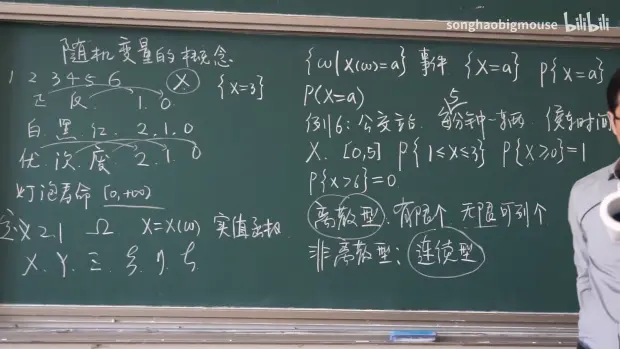 songhaobigmouse bilibili
随机变量的概念
1 2 3 4 5 6 X {X=3}
正 反 1. 0
白. 黑. 红. 2. 1. 0
优. 次. 废. 2. 1. 0
灯泡寿命 [0,+∞)
定义2.1 Ω X=X(ω) 实值函数
X. Y. Ξ.
{ω|X(ω)=a} 事件 {X=a} P{X=a}
P(X=a)
5
例6:公交车站. 每分钟一车 候车时间
X. [0,5] P{1≤X≤3} P{X≥0}=1
P{X>6}=0
离散型. 有限个 无限可列个
非离散型: 连续型